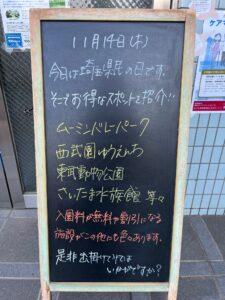 11月14日(木)
今日は埼玉県民の日です。
そこでお得なスポットを紹介!!
ムーミンバレーパーク
西武園ゆうえんち
東武動物公園
さいたま水族館 等々
入園料が無料や割引になる
施設がこの他にも色々あります。
是非お出掛けしてみては
いかがですか?
ケアマ